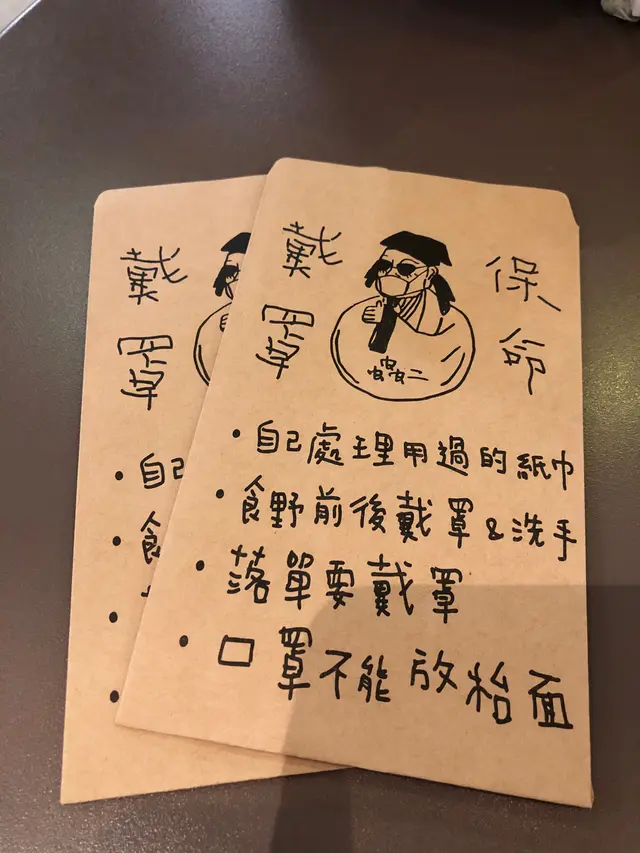 戴罩
保命
蟲二
• 自己處理用過的紙巾
• 食野前後戴罩&洗手
• 落單要戴罩
• 口罩不能放枱面
戴罩
• 自己
• 食